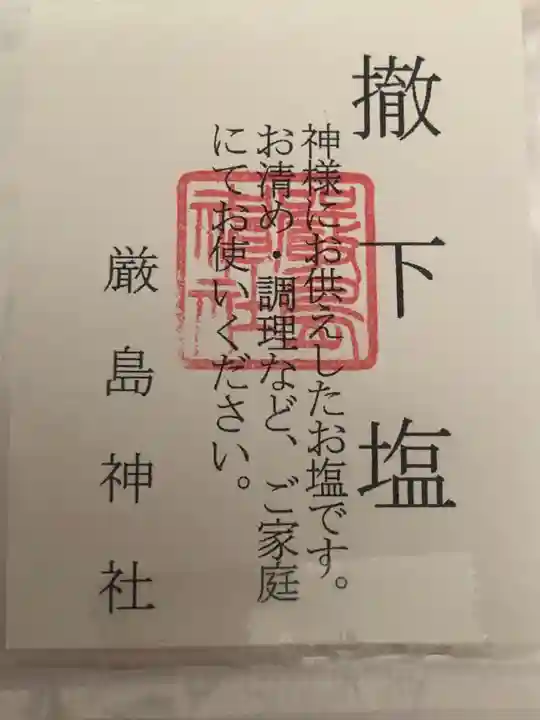 撤下塩
神様にお供えしたお塩です。
お清め・調理など、ご家庭
にてお使いください。
厳島神社
嚴島
神社